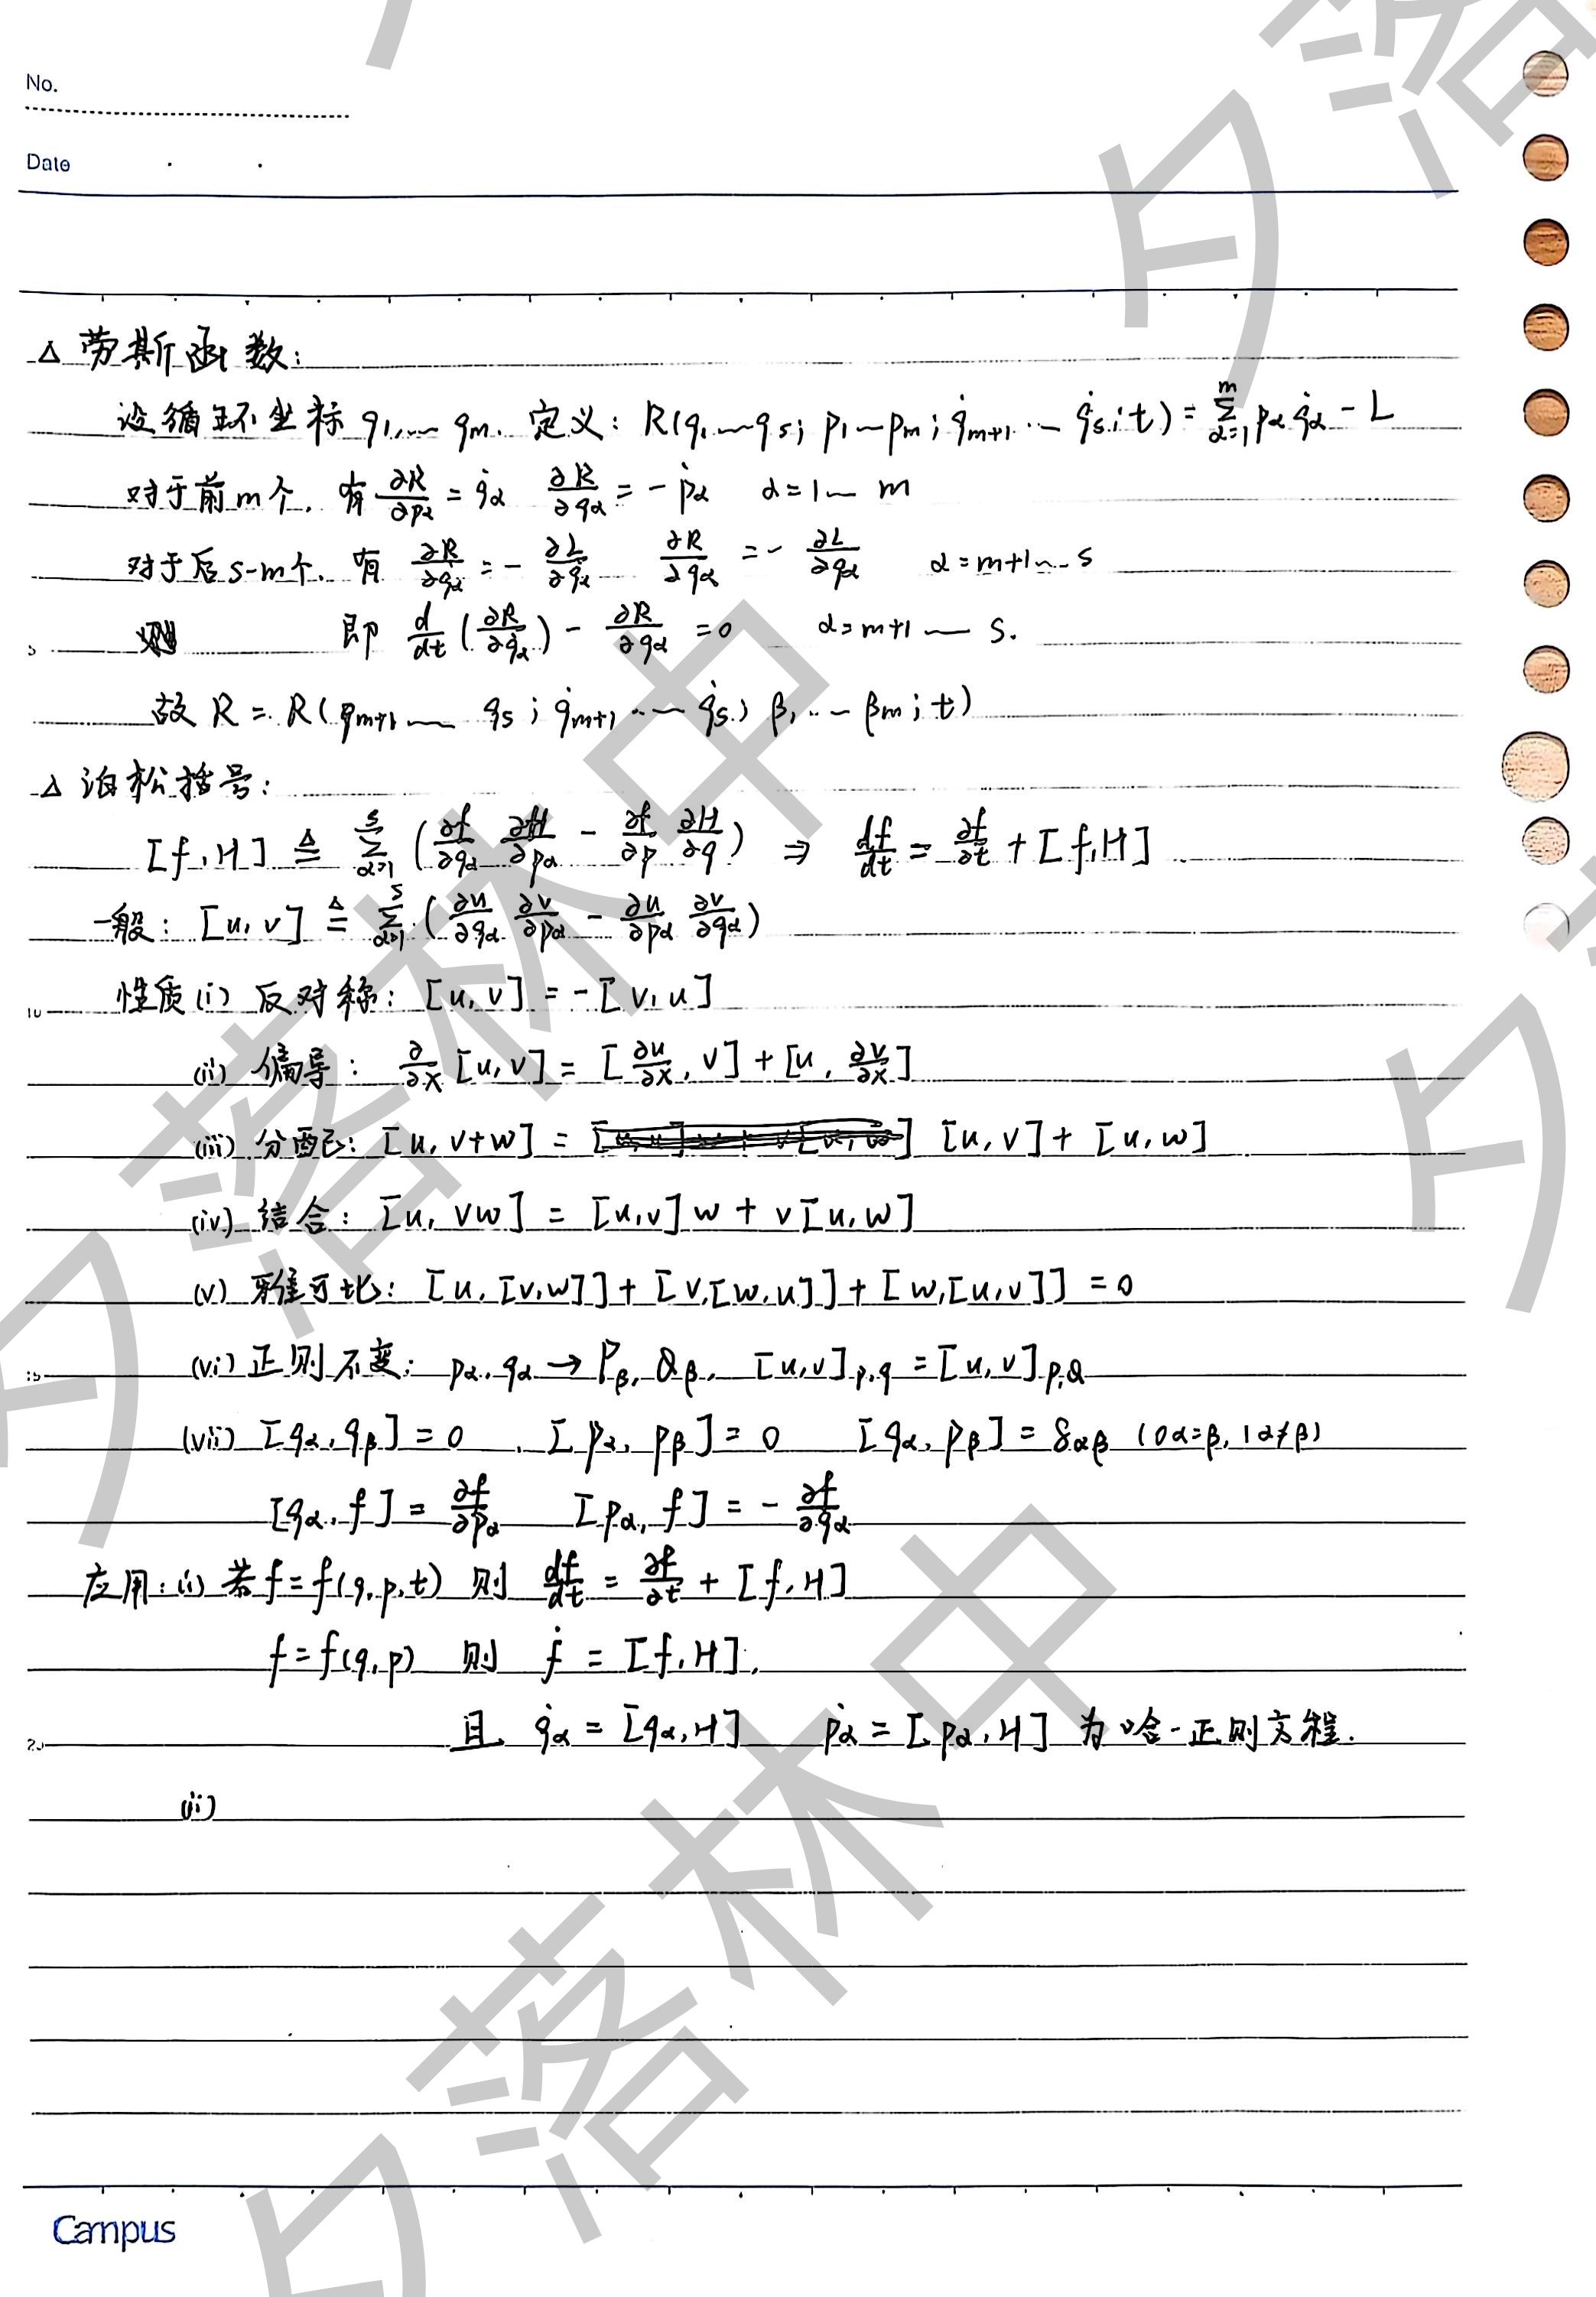 No.
Date
△ 劳斯函数:
设循环坐标 q₁,… qₘ. 定义: R(q₁…qₛ; p₁…pₘ; q̇ₘ₊₁ … q̇ₛ; t) = Σ_{α=1}^{m} pα q̇α - L
对于前m个. 有 ∂R/∂pα = q̇α ∂R/∂qα = - ṗα α=1… m
对于后s-m个. 有 ∂R/∂q̇α = - ∂L/∂q̇α ∂R/∂qα = - ∂L/∂qα α=m+1…s
5 即 d/dt (∂R/∂q̇α) - ∂R/∂qα = 0 α=m+1 … s.
故 R = R(qₘ₊₁ … qₛ; q̇ₘ₊₁ … q̇ₛ; β₁ … βₘ; t)
△ 泊松括号:
[f, H] ≜ Σ_{α=1}^{s} (∂f/∂qα ∂H/∂pα - ∂f/∂p ∂H/∂q) ⇒ df/dt = ∂f/∂t + [f,H]
一般: [u, v] ≜ Σ_{α=1}^{s} (∂u/∂qα ∂v/∂pα - ∂u/∂pα ∂v/∂qα)
10 性质 (i) 反对称: [u, v] = -[v, u]
(ii) 偏导: ∂/∂x [u, v] = [∂u/∂x, v] + [u, ∂v/∂x]
(iii) 分配: [u, v+w] = [u, v] + [u, w]
(iv) 结合: [u, vw] = [u,v]w + v[u,w]
(v) 雅可比: [u, [v,w]] + [v,[w,u]] + [w,[u,v]] = 0
15 (vi) 正则不变: pα, qα → Pβ, Qβ, [u,v]p,q = [u,v]P,Q
(vii) [qα, qβ] = 0 , [pα, pβ] = 0 [qα, pβ] = δαβ (0 α=β, 1 α≠β)
[qα, f] = ∂f/∂pα [pα, f] = - ∂f/∂qα
应用: (i) 若 f=f(q,p,t) 则 df/dt = ∂f/∂t + [f,H]
f=f(q,p) 则 ḟ = [f,H],
20 且 q̇α = [qα,H] ṗα = [pα,H] 为哈-正则方程.
(ii)
Campus
夕落林中
夕落林中
夕落
夕落